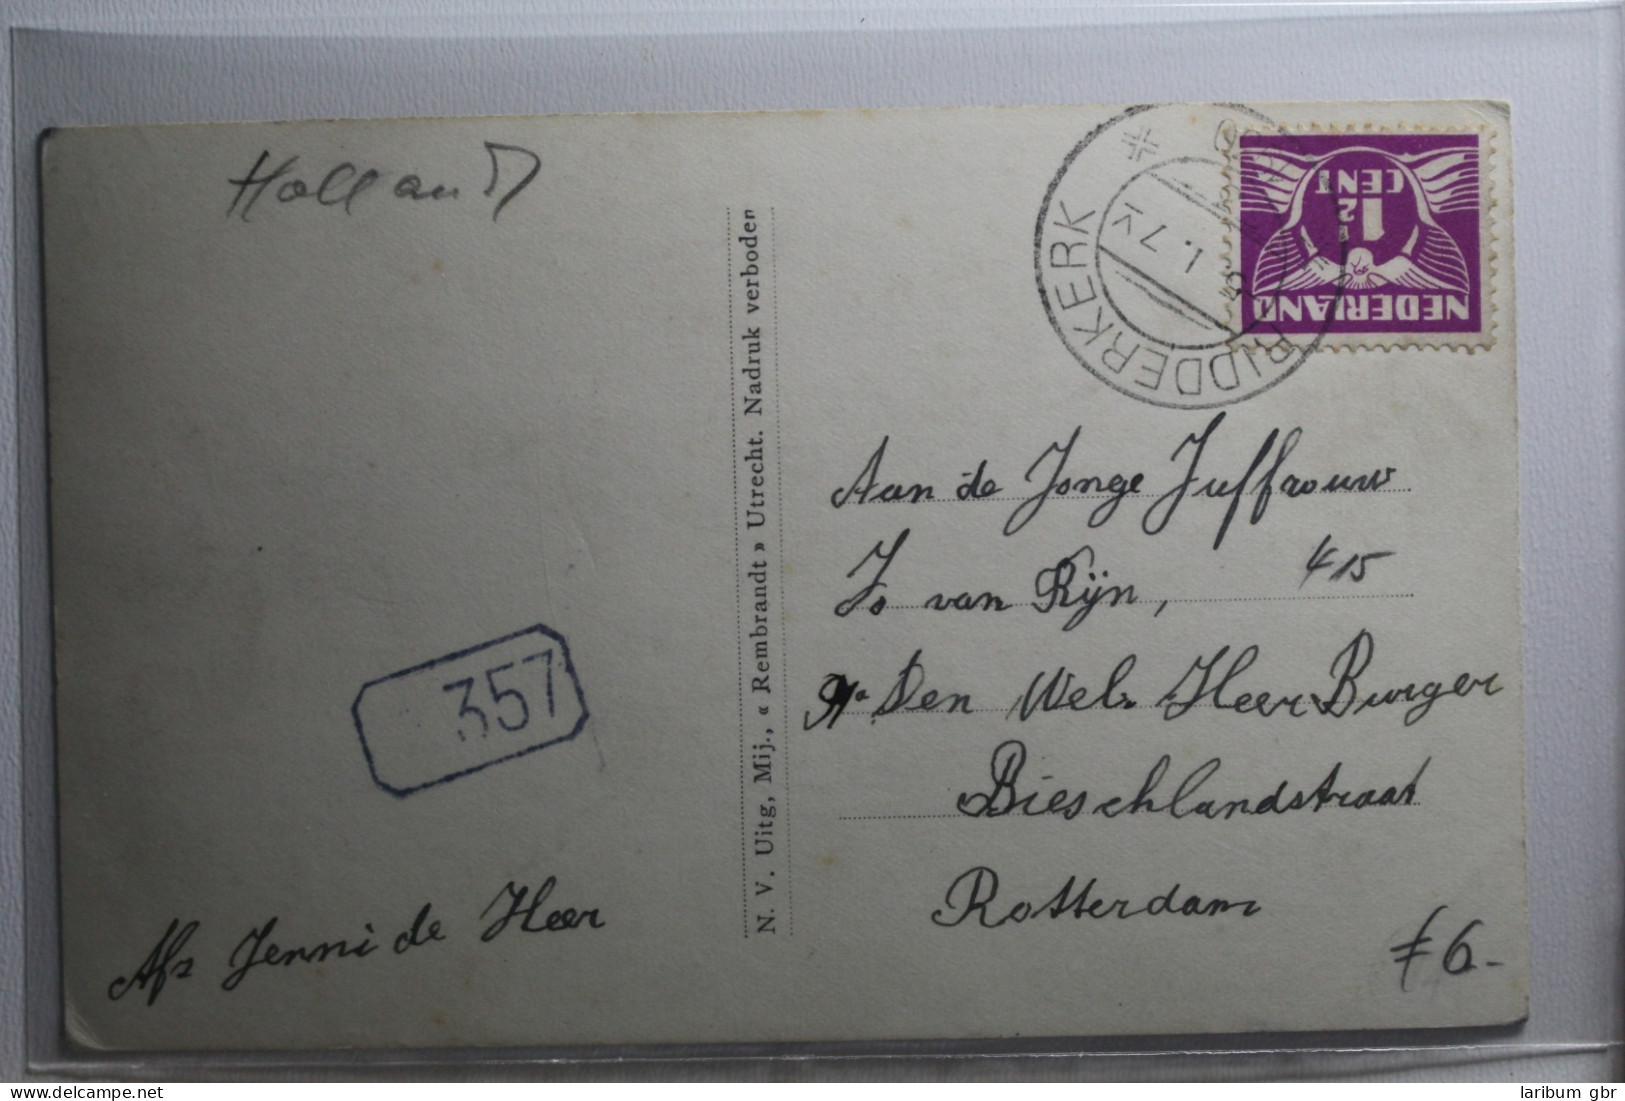 Holland
RIDDERKERK
NEDERLAND
1½
CENT
N. V. Uitg, Mij., « Rembrandt » Utrecht. Nadruk verboden
Aan de Jonge Juffrouw
Jo van Rÿn,
415
Den Wel. Heer Burger
Bieschlandstraat
Rotterdam
357
Afz Jenni de Heer
f 6.-
www.delcampe.net
laribum gbr